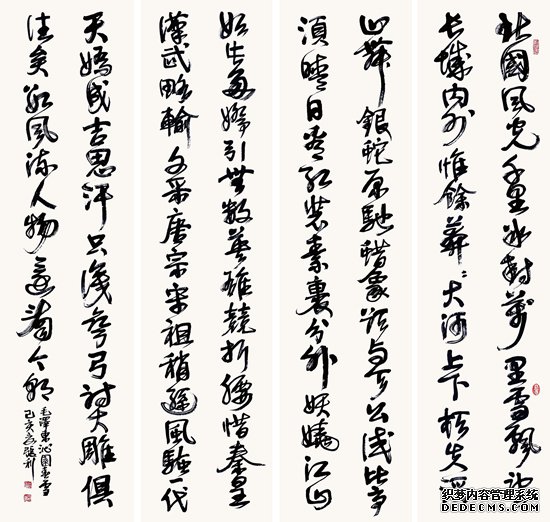 北國風光千里冰封萬里雪飄望
長城内外惟餘莽々大河上下頓失滔
山舞銀蛇原馳蜡象欲与天公試比高
須晴日看紅裝素裹分外妖嬈江山
如此多嬌引無數英雄競折腰惜秦皇
漢武略輸文采唐宗宋祖稍遜風騷一代
天驕成吉思汗只識彎弓射大雕俱
往矣數風流人物還看今朝
毛澤東沁園春雪
己亥
织梦内容管理系统
DEDECMS.COM